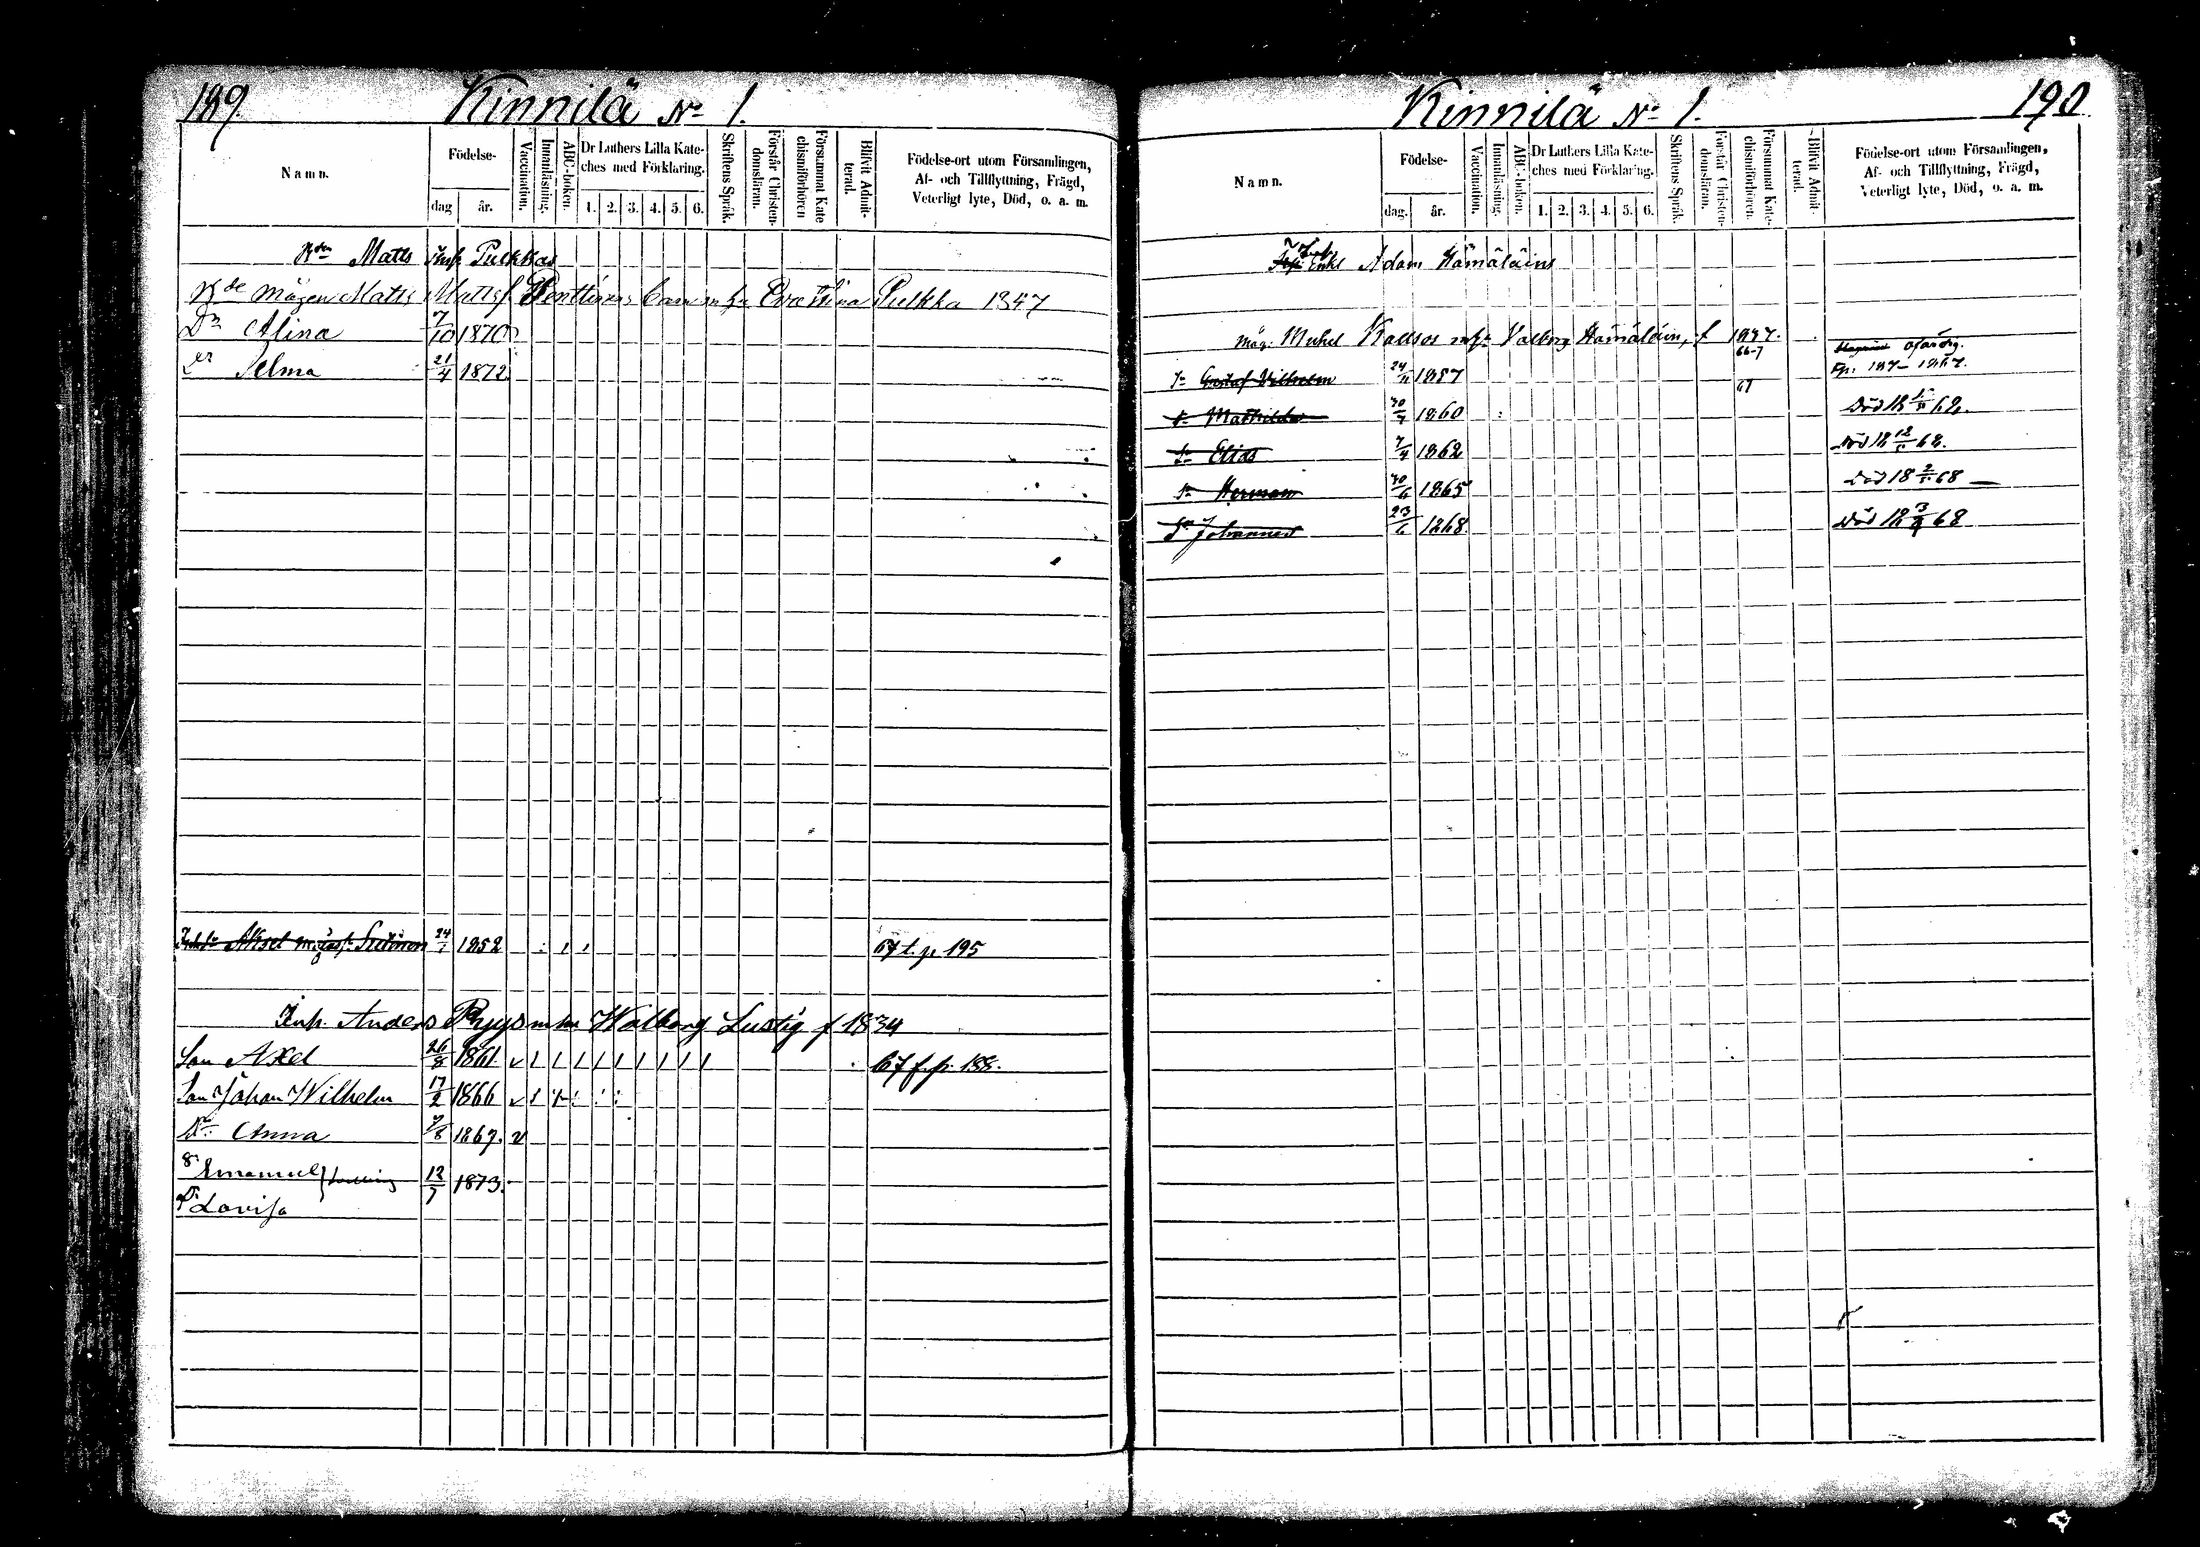 189.
Kinnilä No 1.
Namn.
Födelse-
dag
år.
Vaccination.
Innanläsning.
ABC-boken.
Dr Luthers Lilla Kate-
ches med Förklaring.
1. 2. 3. 4. 5. 6.
Skriftens Språk.
Förstår Christen-
domsläran.
Försummat Kate
chismiförhören
Blifvit Admit-
terad.
Födelse-ort utom Församlingen,
Af- och Tillflyttning, Frägd,
Veterligt lyte, Död, o. a. m.
Matts Pulkkas
mågen Matts Mattsf Penttinens Eva Stina Pulkka 1847
Dr Alina 7/10 1870
Dr Selma 21/4 1872
Aksel 24 1852 67 t. p. 195
Inh. Anders Ryys Walborg Lustig f 1834
Son Axel 26/8 1861. 67 f. p. 188.
Son Johan Wilhelm 17/2 1866
Dr. Anna 7/8 1867.
Sn Emanuel 12/7 1873.
Dr Lovisa
Kinnilä No 1.
190
Namn.
Födelse-
dag.
år.
Vaccination.
Innanläsning.
ABC-boken.
Dr Luthers Lilla Kate-
ches med Förklaring.
1. 2. 3. 4. 5. 6.
Skriftens Språk.
Förstår Christen-
domsläran.
Försummat Kate-
chismiförhören.
Blifvit Admit-
terad.
Födelse-ort utom Församlingen,
Af- och Tillflyttning, Frägd,
Veterligt lyte, Död, o. a. m.
Enkl Adam Hämäläins
Måg. Mickel Valborg Hämäläin, f 1837.
66-7
Sn Gustaf Wilhelm 24 1857 67
Mathilda 30 1860 Död 18 62.
Sn Elias 7/4 1862 Död 18 12 68.
Sn Herman 30/6 1865 Död 18 2 68
Sn Johannes 23/6 1868 Död 18 3/9 68